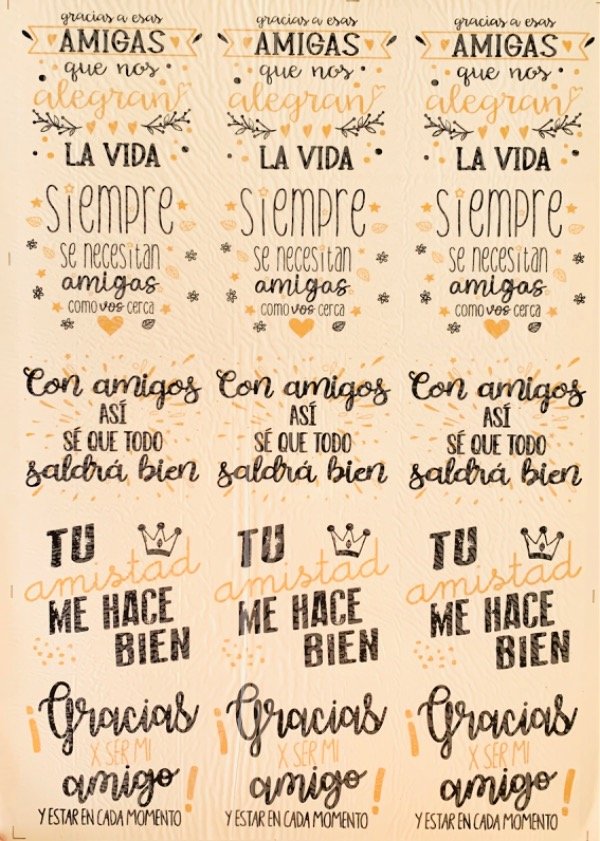 gracias a esas
AMIGAS
que nos
alegran
LA VIDA
gracias a esas
AMIGAS
que nos
alegran
LA VIDA
gracias a esas
AMIGAS
que nos
alegran
LA VIDA
Siempre
se necesitan
amigas
como vos cerca
Siempre
se necesitan
amigas
como vos cerca
Siempre
se necesitan
amigas
como vos cerca
Con amigos
ASÍ
SÉ QUE TODO
saldrá bien
Con amigos
ASÍ
SÉ QUE TODO
saldrá bien
Con amigos
ASÍ
SÉ QUE TODO
saldrá bien
TU
amistad
ME HACE
BIEN
TU
amistad
ME HACE
BIEN
TU
amistad
ME HACE
BIEN
¡Gracias
X SER MI
amigo!
Y ESTAR EN CADA MOMENTO
¡Gracias
X SER MI
amigo!
Y ESTAR EN CADA MOMENTO
¡Gracias
X SER MI
amigo!
Y ESTAR EN CADA MOMENTO